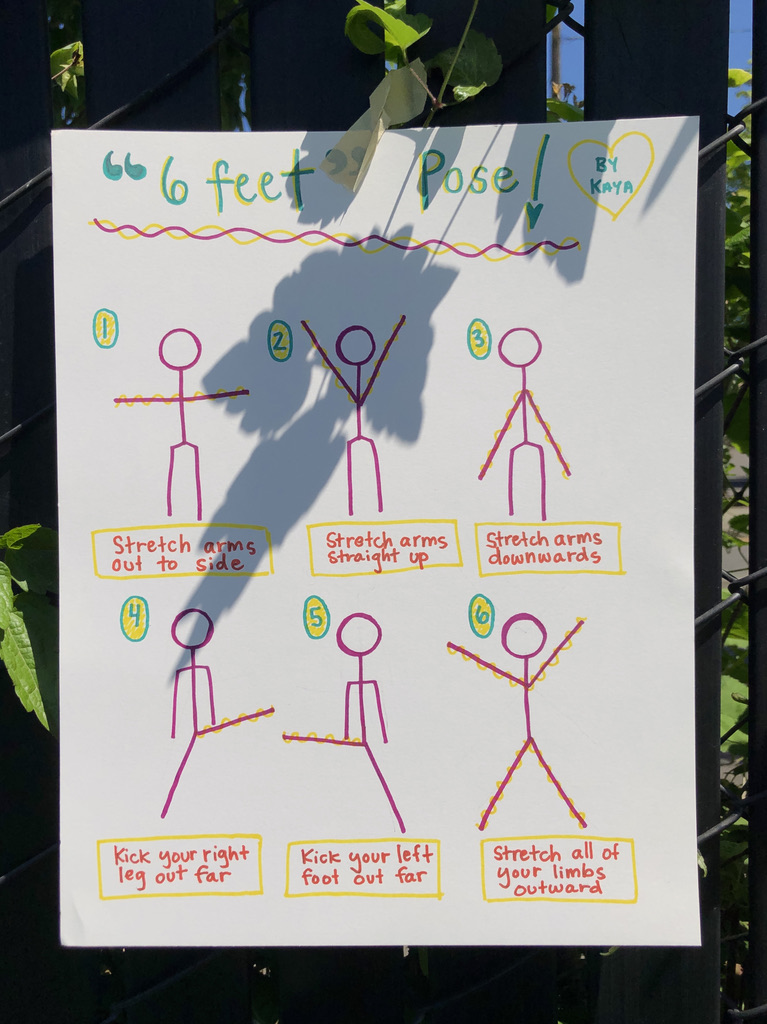 “6 feet” Pose!
BY
KAYA
1
2
3
Stretch arms
out to side
Stretch arms
straight up
Stretch arms
downwards
4
5
6
Kick your right
leg out far
Kick your left
foot out far
Stretch all of
your limbs
outward